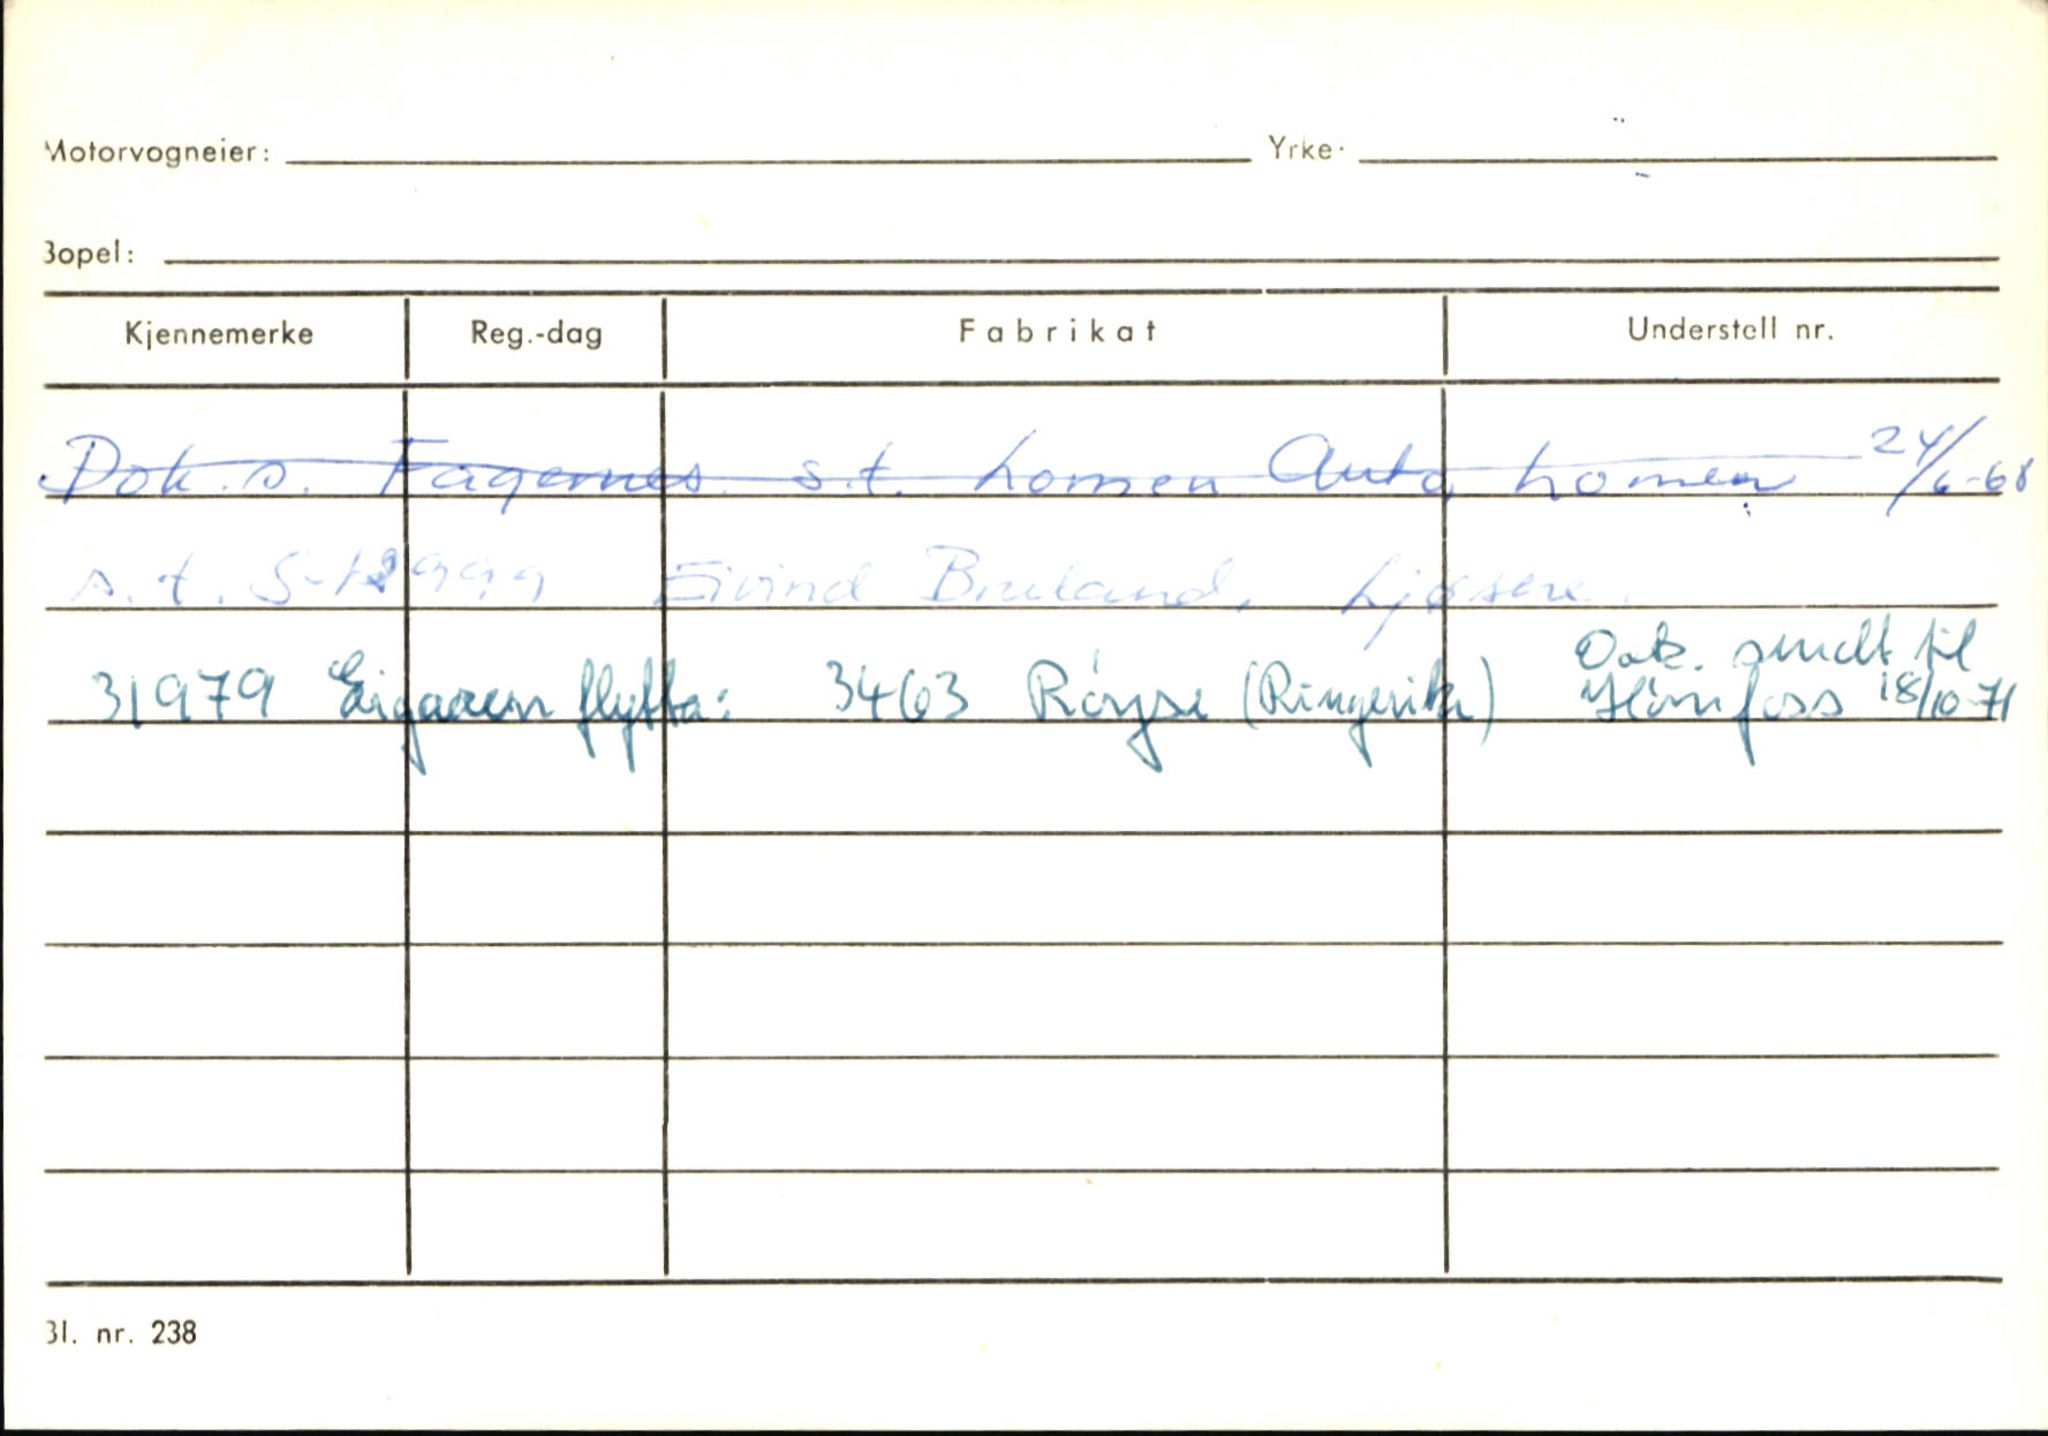 Motorvogneier: Yrke:
Bopel:
Kjennemerke Reg.-dag Fabrikat Understell nr.
Dok. s. Fagernes s.t. Lomen Auto, Lomen 24/6-68
s.t. S-12999 Eivind Bruland, Ljøsne.
Dok. sendt til
31979 Eigaren flytta: 3463 Röyse (Ringerike) Hönefoss 18/10-71
Bl. nr. 238